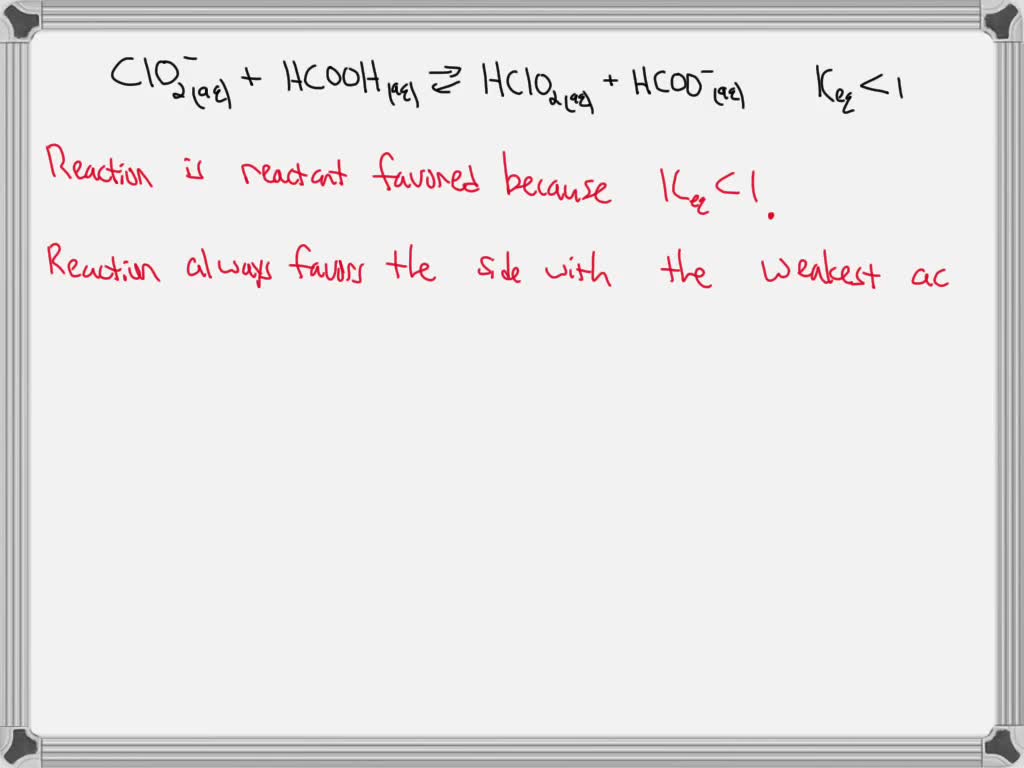 ClO₂⁻(aq) + HCOOH(aq) ⇌ HClO₂(aq) + HCOO⁻(aq) Keq < 1
Reaction is reactant favored because Keq < 1.
Reaction always favors the side with the weakest ac